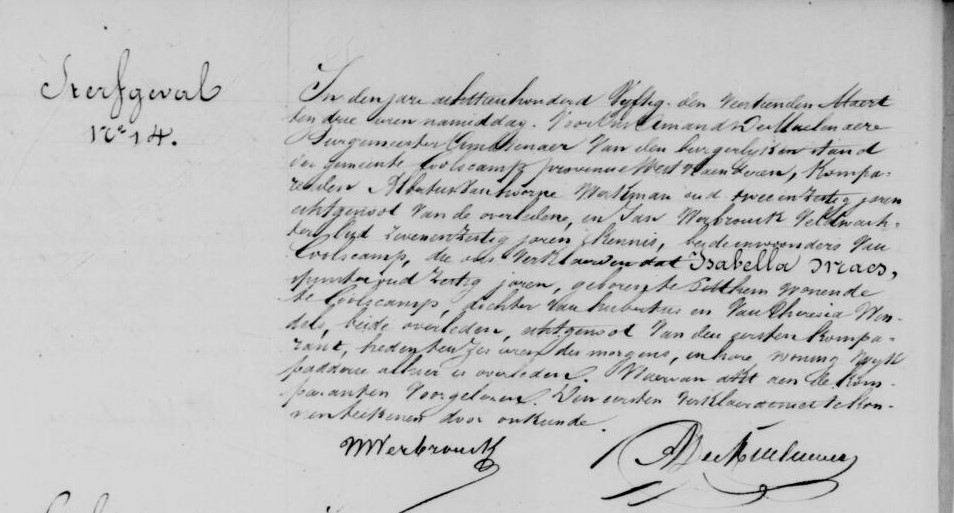 Sterfgeval
N.º 14.
In den jare achttienhonderd vyftig, den veertienden Maert
ten drie uren namiddag. Voor ons Amand De Muelenaere
Burgemeester Ambtenaer van den burgerlyken stand
der gemeente Coolscamp provincie West vlaenderen, kompa-
reerden Albertus Vanhoorne Werkman oud twee en zestig jaren
echtgenoot van de overledene, en Jan Werbrouck Veldwach-
ter oud zevenenzestig jaren, kennis, beide inwoonders van
Coolscamp, die ons verklaerden dat Isabella Maes,
spinster oud zestig jaren, geboren te Pitthem wonende
te Coolscamp, dochter van hubertus en van Theresia
beide overleden, echtgenoot van den eersten kompa-
rant, heden ten zes uren des morgens, in hare woning wyk
alhier is overleden. Waervan akt aen de kom-
paranten voorgelezen. Den eersten verklaerde niet te kon-
nen teekenen door onkunde.
Werbrouck
ADeMuelenaere